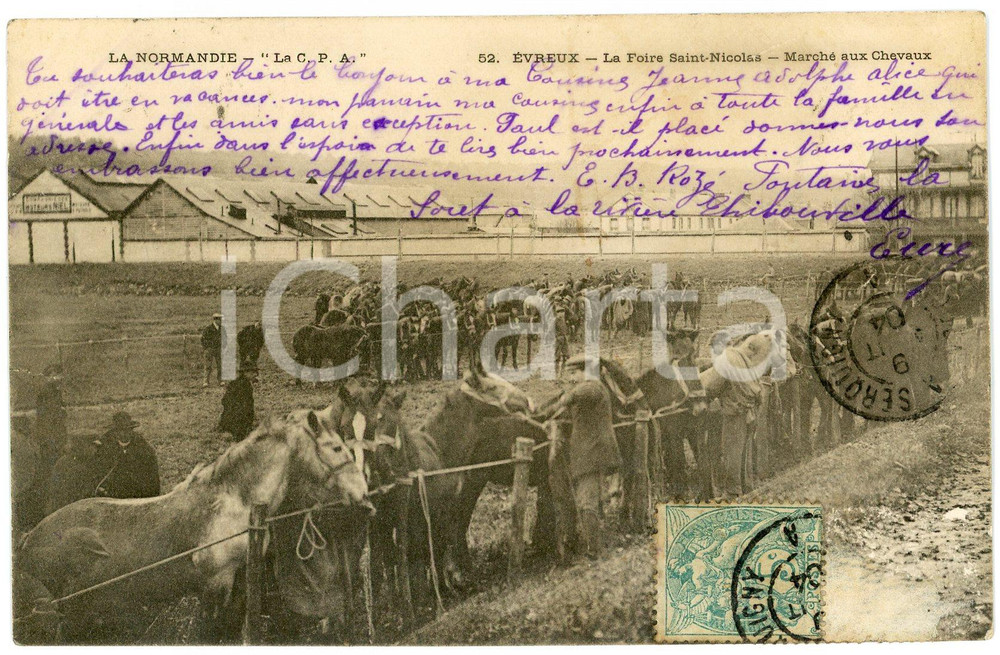 LA NORMANDIE – "La C. P. A."
52. ÉVREUX – La Foire Saint-Nicolas – Marché aux Chevaux
Tu souhaiteras bien le bonjour à ma Cousine Jeanne adolphe alice qui
doit être en vacances. mon parrain ma cousine enfin à toute la famille en
générale et les amis sans exception. Paul est-il placé donnes-nous son
adresse. Enfin dans l'espoir de te lire bien prochainement. Nous vous
embrassons bien affectueusement. E. B. Rozé Fontaine la
Soret à la rivière Thibouville
Eure
iCharta
04
POSTES